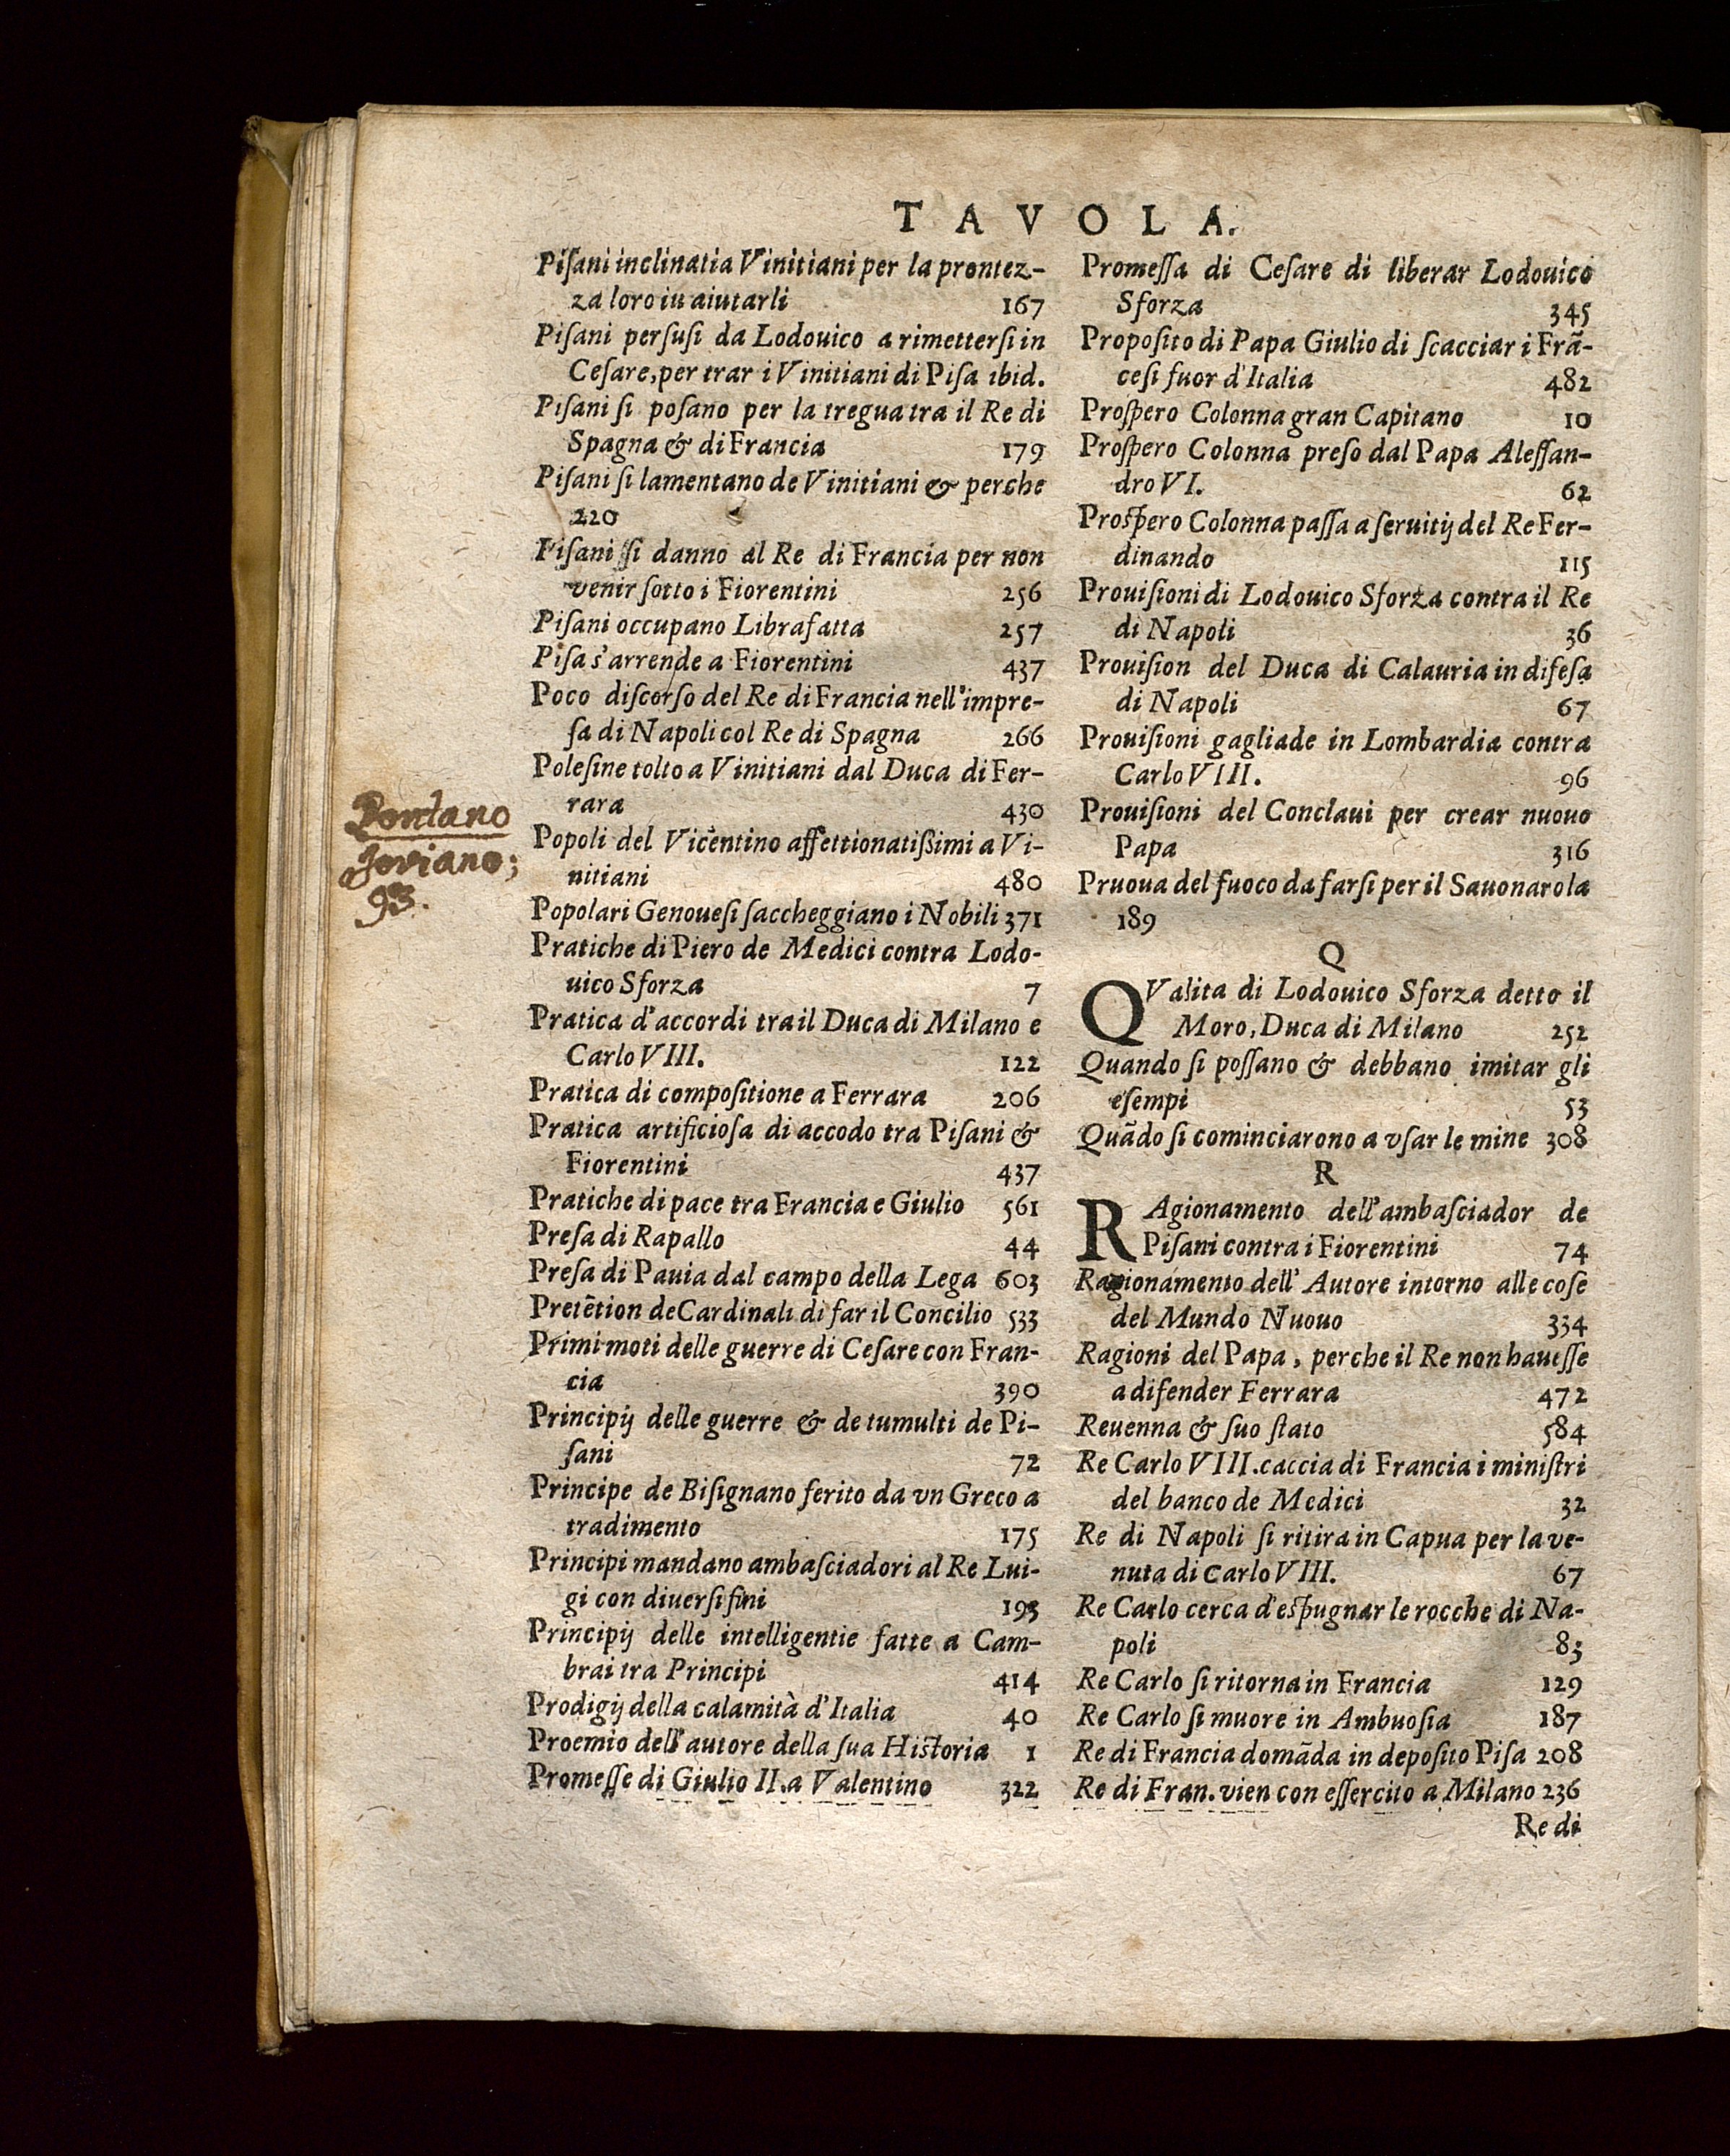 TAVOLA.
Piſani inclinatia Vinitiani per la prontez-
za loro iu aiutarli 167
Piſani perſuſi da Lodouico a rimetterſi in
Ceſare, per trar i Vinitiani di Piſa ibid.
Piſani ſi poſano per la tregua tra il Re di
Spagna & di Francia 179
Piſani ſi lamentano de Vinitiani & perche
220
Piſani ſi danno al Re di Francia per non
venir ſotto i Fiorentini 256
Piſani occupano Librafatta 257
Piſa s'arrende a Fiorentini 437
Poco diſcorſo del Re di Francia nell'impre-
ſa di Napoli col Re di Spagna 266
Poleſine tolto a Vinitiani dal Duca di Fer-
rara 430
Popoli del Vicentino affettionatiſsimi a Vi-
nitiani 480
Popolari Genoueſi ſaccheggiano i Nobili 371
Pratiche di Piero de Medici contra Lodo-
uico Sforza 7
Pratica d'accordi tra il Duca di Milano e
Carlo VIII. 122
Pratica di compoſitione a Ferrara 206
Pratica artificioſa di accodo tra Piſani &
Fiorentini 437
Pratiche di pace tra Francia e Giulio 561
Preſa di Rapallo 44
Preſa di Pauia dal campo della Lega 603
Pretētion de Cardinali di far il Concilio 533
Primi moti delle guerre di Ceſare con Fran-
cia 390
Principij delle guerre & de tumulti de Pi-
ſani 72
Principe de Biſignano ferito da vn Greco a
tradimento 175
Principi mandano ambaſciadori al Re Lui-
gi con diuerſi fini 193
Principij delle intelligentie fatte a Cam-
brai tra Principi 414
Prodigij della calamità d'Italia 40
Proemio dell'autore della ſua Hiſtoria 1
Promeſſe di Giulio II. a Valentino 322
Pontano
Joviano;
93.
Promeſſa di Ceſare di liberar Lodouico
Sforza 345
Propoſito di Papa Giulio di ſcacciar i Frã-
ceſi fuor d'Italia 482
Proſpero Colonna gran Capitano 10
Proſpero Colonna preſo dal Papa Aleſſan-
dro VI. 62
Proſpero Colonna paſſa a ſeruitij del Re Fer-
dinando 115
Prouiſioni di Lodouico Sforza contra il Re
di Napoli 36
Prouiſion del Duca di Calauria in difeſa
di Napoli 67
Prouiſioni gagliade in Lombardia contra
Carlo VIII. 96
Prouiſioni del Conclaui per crear nuouo
Papa 316
Pruoua del fuoco da farſi per il Sauonarola
189
Q
QValita di Lodouico Sforza detto il
Moro, Duca di Milano 252
Quando ſi poſſano & debbano imitar gli
eſempi 53
Quãdo ſi cominciarono a vſar le mine 308
R
RAgionamento dell'ambaſciador de
Piſani contra i Fiorentini 74
Ragionamento dell'Autore intorno alle coſe
del Mundo Nuouo 334
Ragioni del Papa, perche il Re non haueſſe
a difender Ferrara 472
Reuenna & ſuo ſtato 584
Re Carlo VIII. caccia di Francia i miniſtri
del banco de Medici 32
Re di Napoli ſi ritira in Capua per la ve-
nuta di Carlo VIII. 67
Re Carlo cerca d'eſpugnar le rocche di Na-
poli 83
Re Carlo ſi ritorna in Francia 129
Re Carlo ſi muore in Ambuoſia 187
Re di Francia domãda in depoſito Piſa 208
Re di Fran. vien con eſſercito a Milano 236
Re di